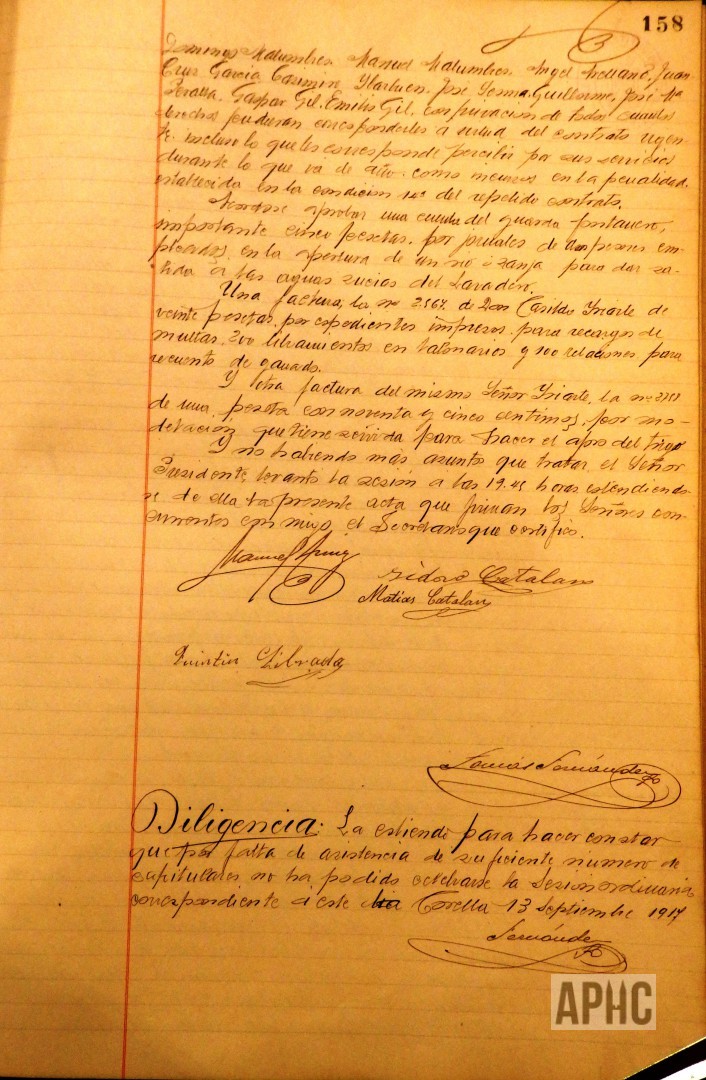 158
Domingo Malumbres. Manuel Malumbres. Angel Arellano, Juan
Cruz Garcia Casimiro Ylarduen. José Guillorme, José Mª
Peralta. Gaspar Gil. Emilio Gil, con privacion de todos cuantos
derechos pudieran corresponderles a virtud del contrato vigen-
te, incluso lo que les corresponde percibir por sus servicios
durante lo que va de año. como incursos en la penalidad,
establecida en la condicion 14ª del repetido contrato.
Acordose aprobar una cuenta del guarda
importante cinco pesetas, por jornales de dos peones em-
pleados, en la apertura de un rio o zanja para dar sa-
lida a las aguas sucias del Lavadero.
Una factura, la nº 2.567 de Don Casildo Yriarte de
veinte pesetas, por expedientes impresos, para recargos de
multas. 200 libramientos en talonarios y 100 relaciones para
recuento de ganado.
Y otra factura del mismo Señor Yriarte, la nº
de una, peseta con noventa y cinco centimos, por mo-
delacion que tiene servida para hacer el aforo del trigo
Y no habiendo más asunto que tratar, el Señor
Presidente, levantó la sesión a las 19.45 horas estendiendo-
se de ella la presente acta que firman los Señores con-
currentes con migo el Secretario que certifico.
Manuel
Isidoro Catalan
Matias Catalan
Quintin Librada
Tomás Fernández
Diligencia: La estiendo para hacer constar
que por falta de asistencia de suficiente numero de
capitulares no ha podido celebrarse la Sesion ordinaria
correspondiente a este dia Corella 13 Septiembre 1917
Fernández
APHC